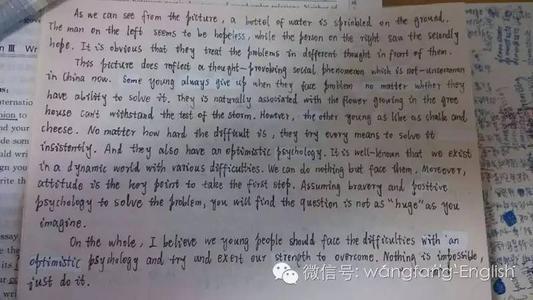 As we can see from the picture, a bottel of water is sprinbled on the ground.
The man on the left seems to be hopeless, while the person on the right saw the secondly
hope. It is obvious that they treat the problems in different thought in front of them.
This picture does reflect a thought-provobing social phenomenon which is not-uncommon
in China now. Some young always give up when they face problem no matter whther they
have ability to solve it. They is naturally associated with the flower growing in the gree
house can't withstand the test of the storm. However, the other young as like as chalk and
cheese. No matter how hard the difficult is, they try every means to solve it
insistently. And they also have an optimistic psychology. It is well-known that we exist
in a dynamic world with various difficulties. We can do nothing but face them. Moreover,
attitude is the key point to take the first step. Assuming bravery and positive
psychology to solve the problem, you will find the question is not as "huge" as you
imagine.
On the whole, I believe we young people should face the difficulties with an
optimistic psychology and try and exert our strength to overcome. Nothing is impossible,
just do it.
微信号: wangfang-English